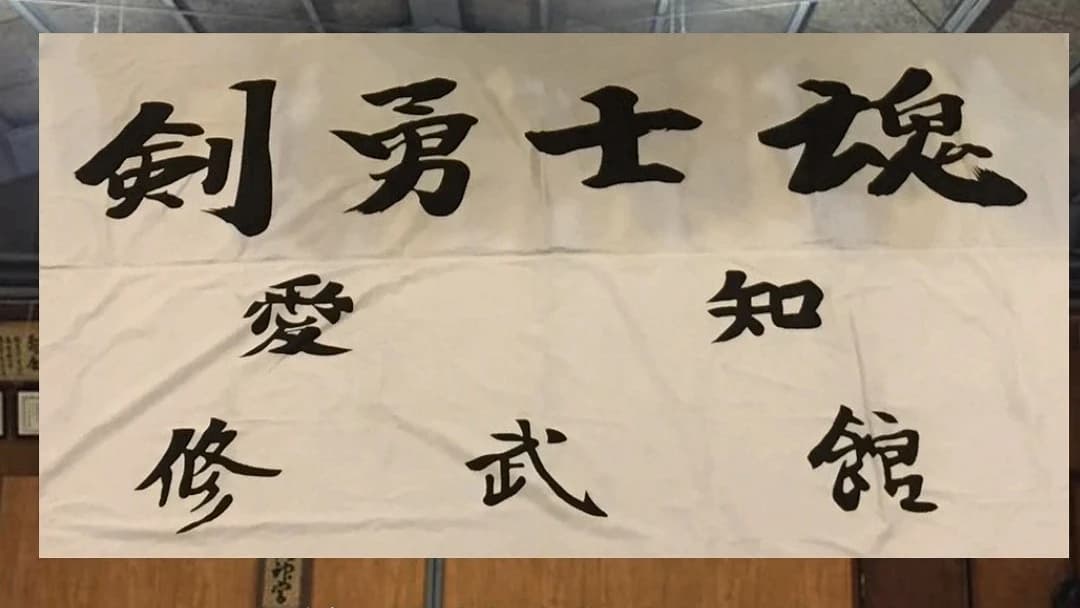 剣勇士魂
愛知
修武館